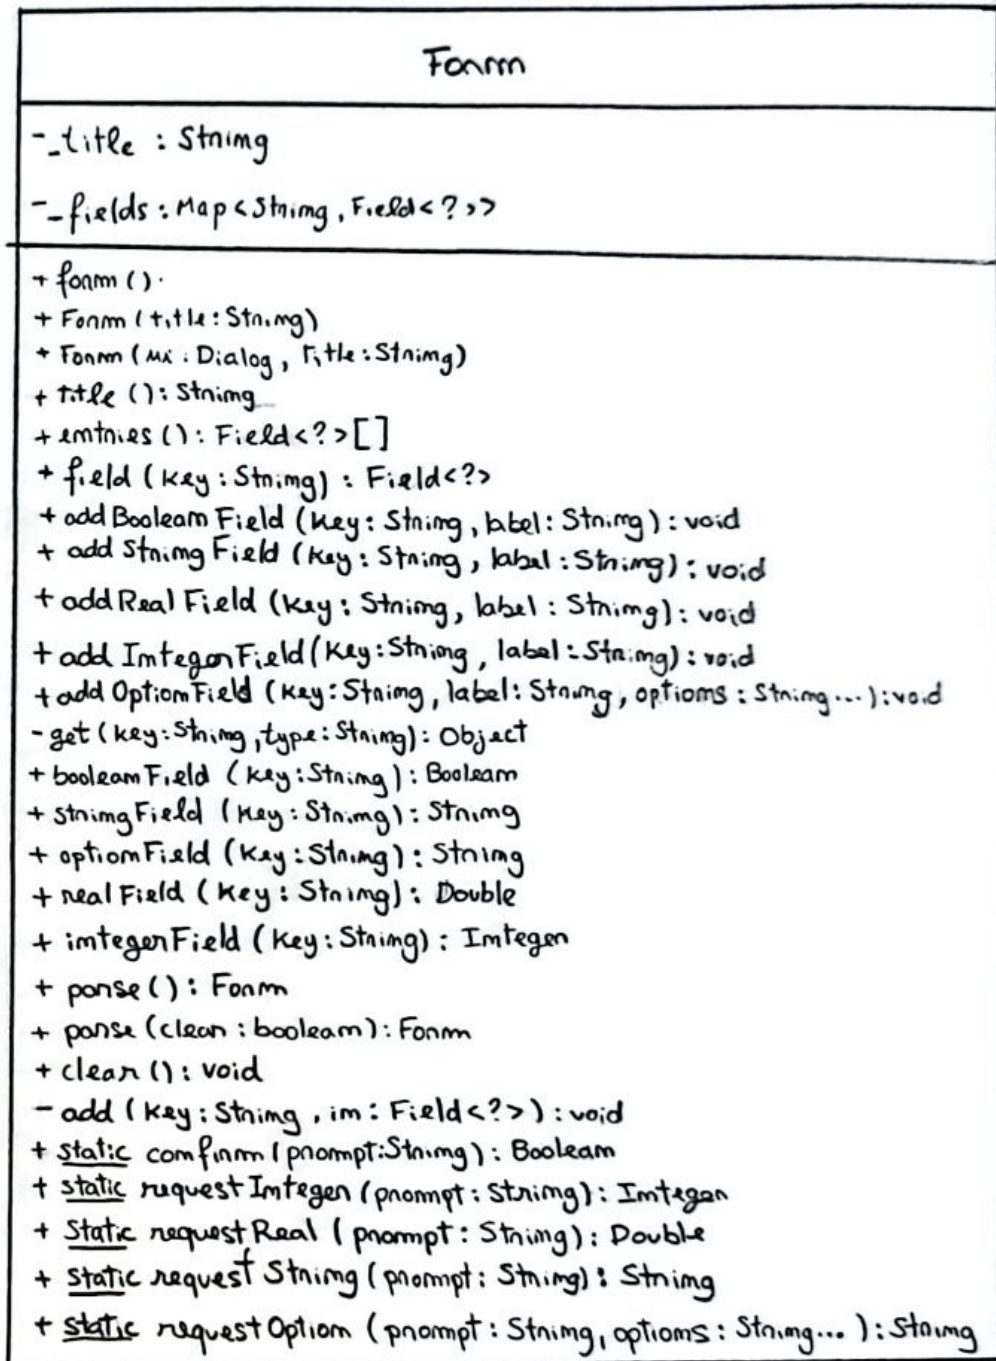 Form
-_title : String
-_fields : Map<String, Field<?>>
+ form ().
+ Form (title : String)
+ Form (ui : Dialog, Title : String)
+ title () : String
+ entries () : Field<?>[]
+ field (key : String) : Field<?>
+ addBooleanField (key : String, label : String) : void
+ addStringField (key : String, label : String) : void
+ addRealField (key : String, label : String) : void
+ addIntegerField (key : String, label : String) : void
+ addOptionField (key : String, label : String, options : String...) : void
- get (key : String, type : String) : Object
+ booleanField (key : String) : Boolean
+ stringField (key : String) : String
+ optionField (key : String) : String
+ realField (key : String) : Double
+ integerField (key : String) : Integer
+ parse () : Form
+ parse (clear : boolean) : Form
+ clear () : void
- add (key : String, in : Field<?>) : void
+ static confirm (prompt : String) : Boolean
+ static requestInteger (prompt : String) : Integer
+ static requestReal (prompt : String) : Double
+ static requestString (prompt : String) : String
+ static requestOption (prompt : String, options : String...) : String